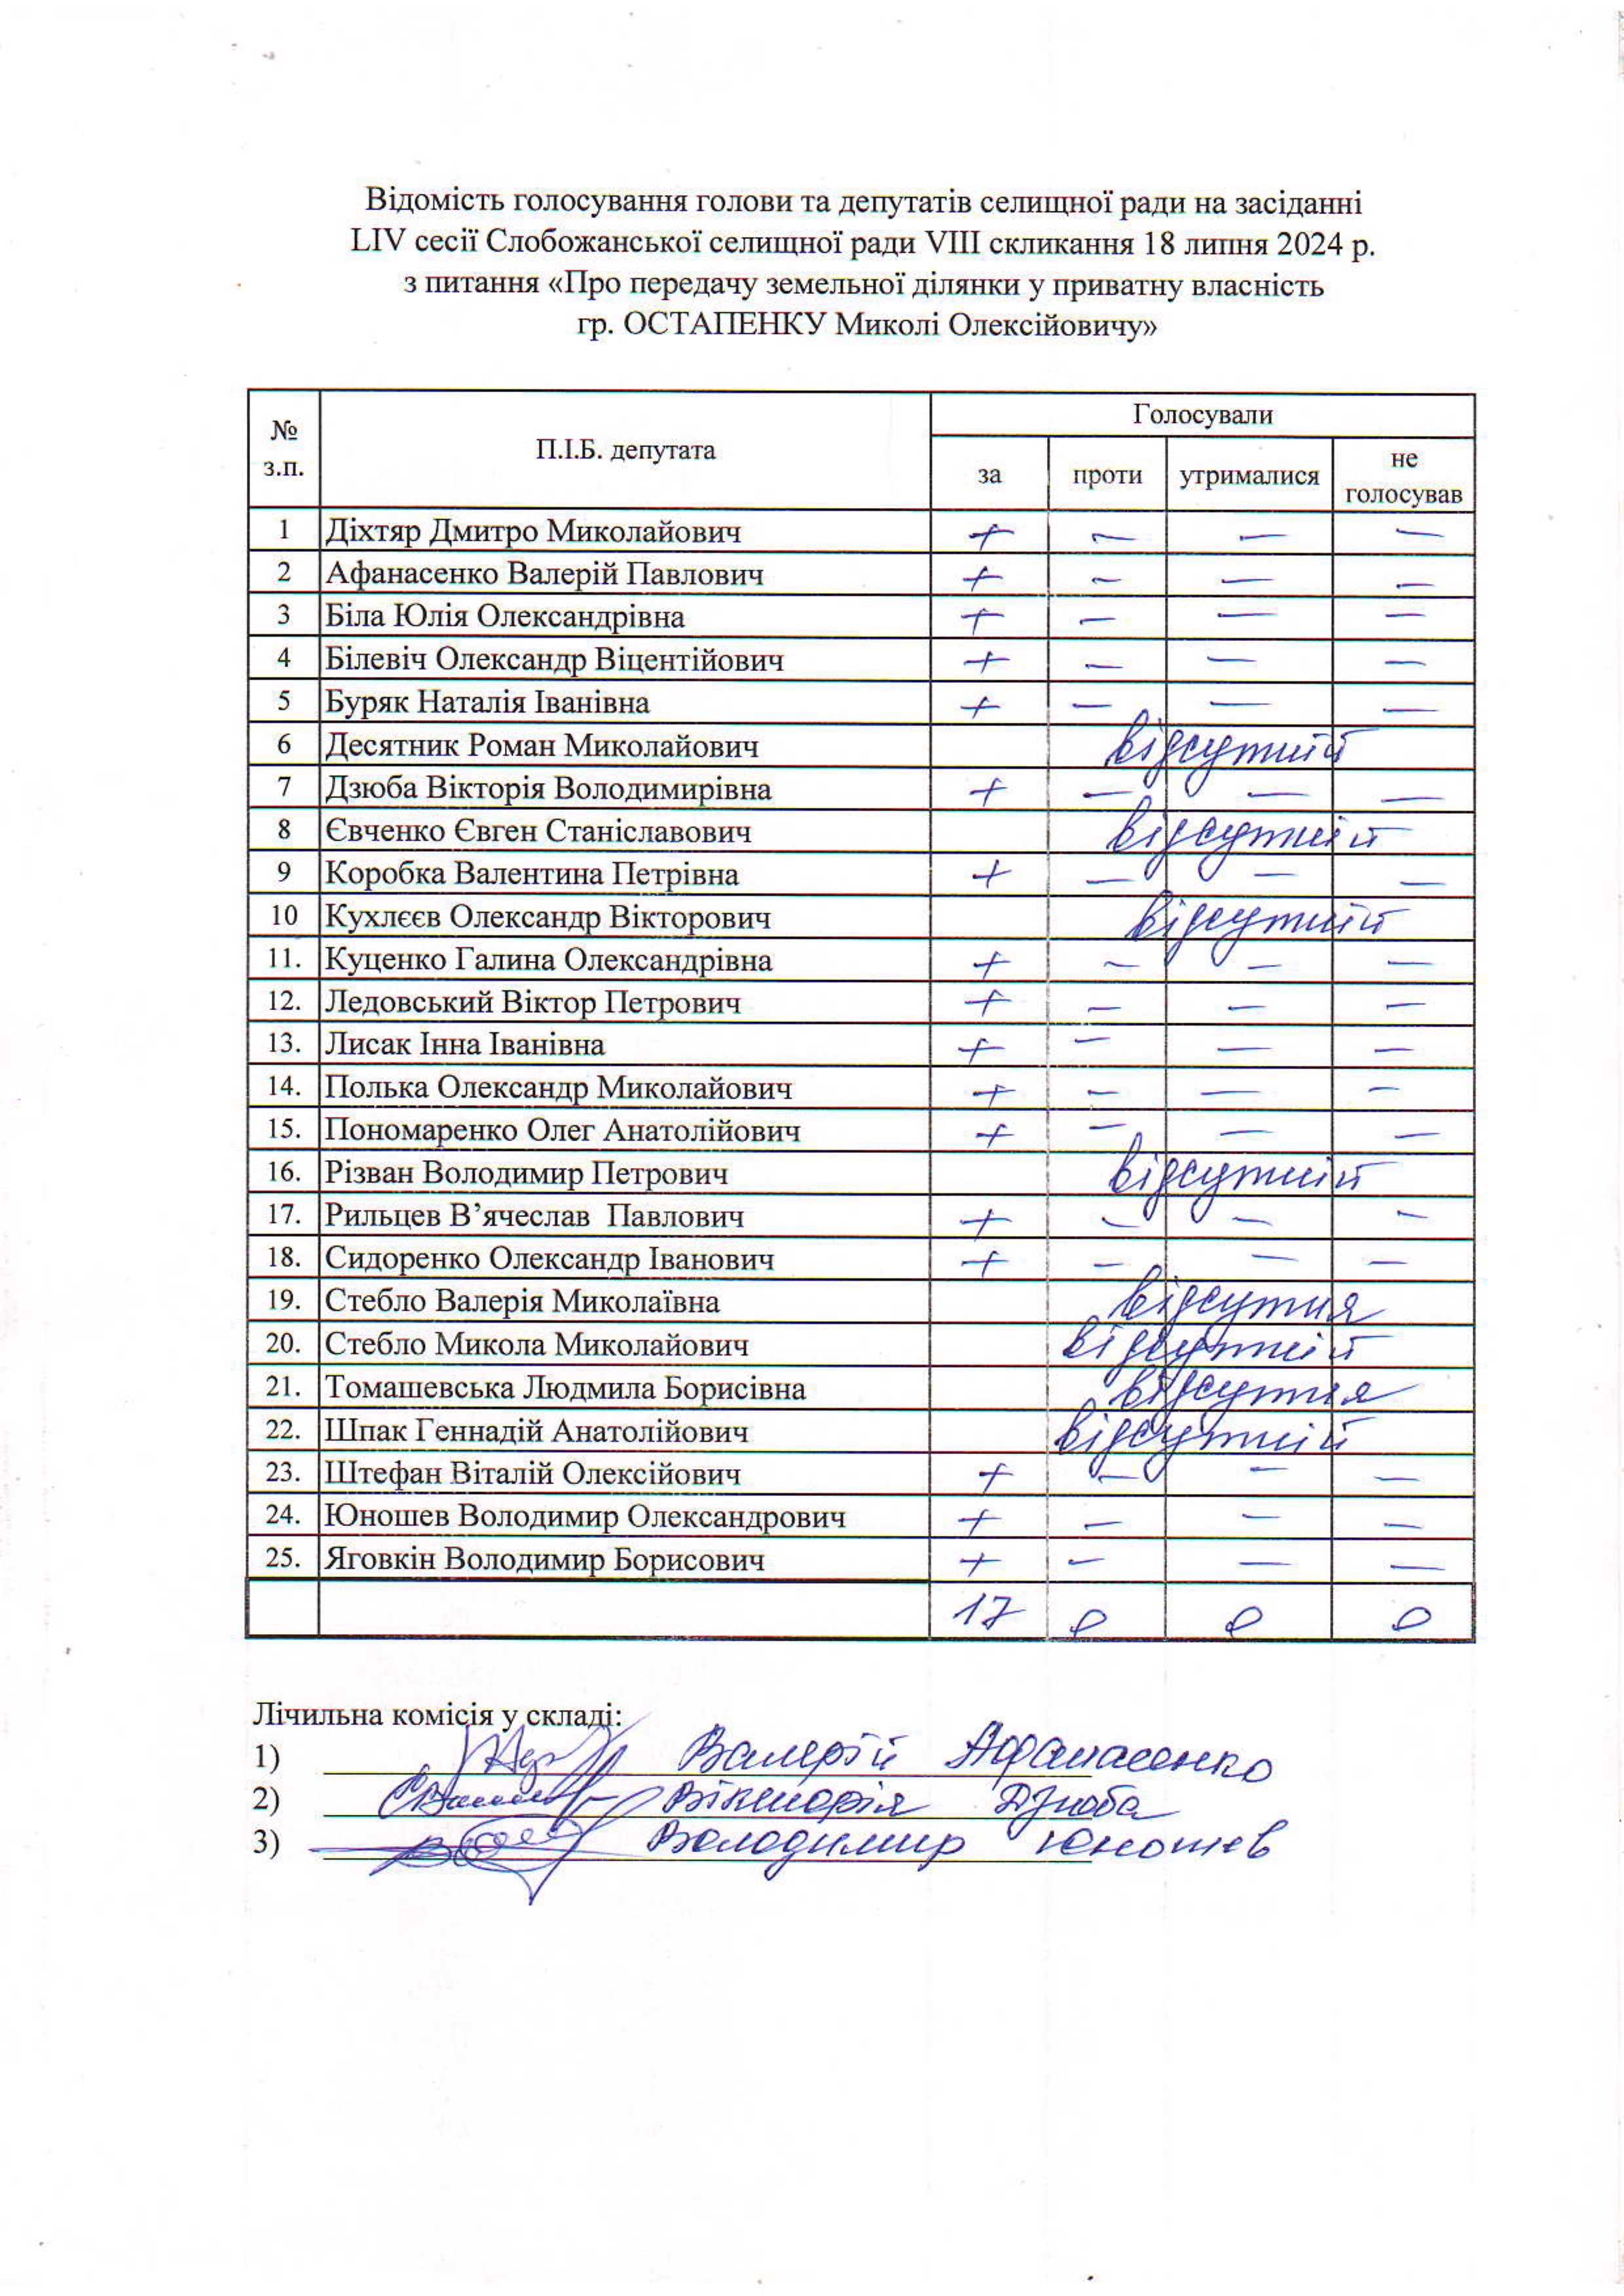 Відомість голосування голови та депутатів селищної ради на засіданні
LIV сесії Слобожанської селищної ради VIII скликання 18 липня 2024 р.
з питання «Про передачу земельної ділянки у приватну власність
гр. ОСТАПЕНКУ Миколі Олексійовичу»
№ з.п. П.І.Б. депутата Голосували
за проти утрималися не голосував
1 Діхтяр Дмитро Миколайович + — — —
2 Афанасенко Валерій Павлович + — — —
3 Біла Юлія Олександрівна + — — —
4 Білевіч Олександр Віцентійович + — — —
5 Буряк Наталія Іванівна + — — —
6 Десятник Роман Миколайович відсутній
7 Дзюба Вікторія Володимирівна + — — —
8 Євченко Євген Станіславович відсутній
9 Коробка Валентина Петрівна + — — —
10 Кухлєєв Олександр Вікторович відсутній
11. Куценко Галина Олександрівна + — — —
12. Ледовський Віктор Петрович + — — —
13. Лисак Інна Іванівна + — — —
14. Полька Олександр Миколайович + — — —
15. Пономаренко Олег Анатолійович + — — —
16. Різван Володимир Петрович відсутній
17. Рильцев В’ячеслав Павлович + — — —
18. Сидоренко Олександр Іванович + — — —
19. Стебло Валерія Миколаївна відсутня
20. Стебло Микола Миколайович відсутній
21. Томашевська Людмила Борисівна відсутня
22. Шпак Геннадій Анатолійович відсутній
23. Штефан Віталій Олексійович + — — —
24. Юношев Володимир Олександрович + — — —
25. Яговкін Володимир Борисович + — — —
17 0 0 0
Лічильна комісія у складі:
1) Валерій Афанасенко
2) Вікторія Дзюба
3) Володимир Юношев